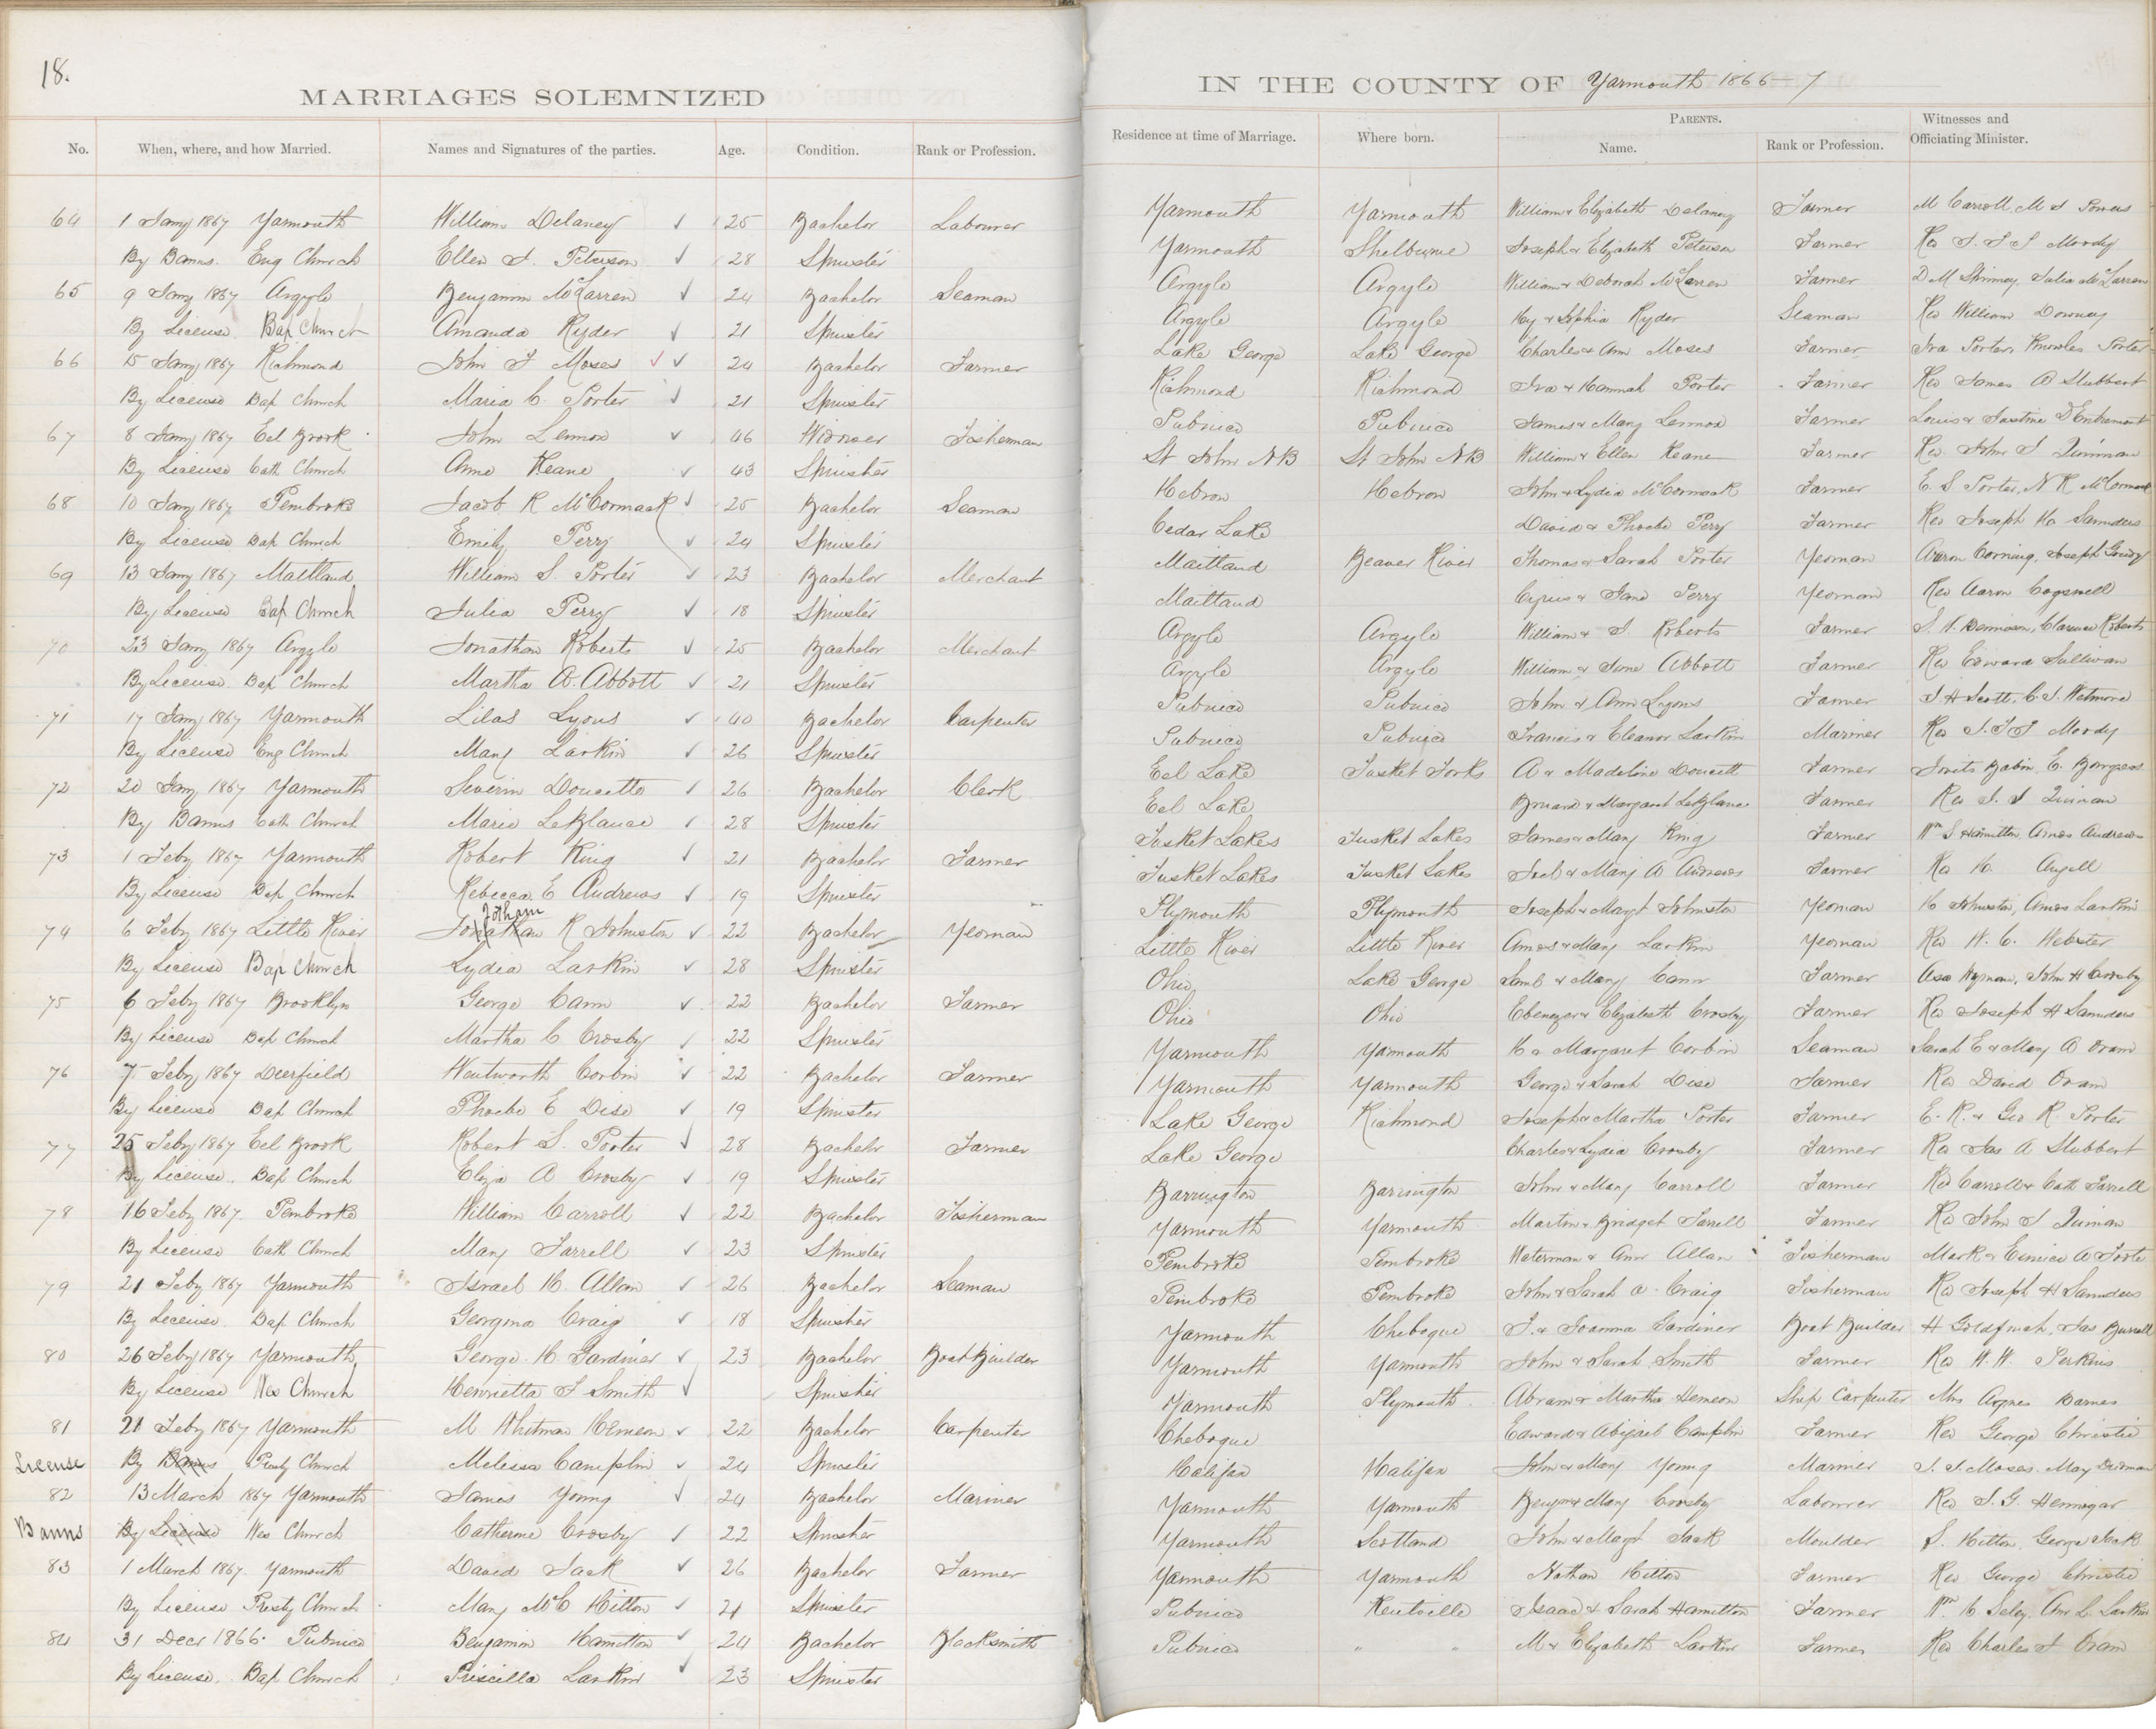 18.
MARRIAGES SOLEMNIZED IN THE COUNTY OF Yarmouth 1866-7
No. When, where, and how Married. Names and Signatures of the parties. Age. Condition. Rank or Profession. Residence at time of Marriage. Where born. PARENTS. Name. Rank or Profession. Witnesses and Officiating Minister.
64 1 Jany 1867 Yarmouth William Delaney 25 Bachelor Labourer Yarmouth Yarmouth William & Elizabeth Delaney Farmer M Carroll, M J Powers
By Banns. Eng Church Ellen J. Peterson 28 Spinster Yarmouth Shelburne Joseph & Elizabeth Peterson Farmer Rev J. T. T. Moody
65 9 Jany 1867 Argyle Benjamin McLarren 24 Bachelor Seaman Argyle Argyle William & Deborah McLarren Farmer D M Skinney, Julia McLarren
By License. Bap Church Amanda Ryder 21 Spinster Argyle Argyle Hy & Sophia Ryder Seaman Rev William Downey
66 15 Jany 1867 Richmond John F Moses 24 Bachelor Farmer Lake George Lake George Charles & Ann Moses Farmer Ira Porter, Knowles Porter
By License Bap Church Maria C. Porter 21 Spinster Richmond Richmond Ira & Hannah Porter Farmer Rev James A Stubbert
67 8 Jany 1867 Eel Brook John Lennox 46 Widower Fisherman Pubnico Pubnico James & Mary Lennox Farmer Louis & Justine D'Entremont
By License Cath Church Anne Keane 43 Spinster St John NB St John NB William & Ellen Keane Farmer Rev John J Quinnan
68 10 Jany 1867 Pembroke Jacob R McCormack 25 Bachelor Seaman Hebron Hebron John & Lydia McCormack Farmer E. S. Porter, N R McCormack
By License Bap Church Emily Perry 24 Spinster Cedar Lake David & Phoebe Perry Farmer Rev Joseph H Saunders
69 13 Jany 1867 Maitland William S. Porter 23 Bachelor Merchant Maitland Beaver River Thomas & Sarah Porter Yeoman Aaron Corning, Joseph Goudy
By License Bap Church Julia Perry 18 Spinster Maitland Cyrus & Jane Perry Yeoman Rev Aaron Cogswell
70 23 Jany 1867 Argyle Jonathan Roberts 25 Bachelor Merchant Argyle Argyle William & J. Roberts Farmer S. N. Dennison, Clarence Roberts
By License. Bap Church Martha A. Abbott 21 Spinster Argyle Argyle William & June Abbott Farmer Rev Edward Sullivan
71 17 Jany 1867 Yarmouth Lilas Lyons 40 Bachelor Carpenter Pubnico Pubnico John & Ann Lyons Farmer J H Scott, C. J. Wetmore
By License Eng Church Mary Larkin 26 Spinster Pubnico Pubnico Francis & Eleanor Larkin Mariner Rev J. T. T. Moody
72 20 Jany 1867 Yarmouth Severin Doucette 26 Bachelor Clerk Eel Lake Tusket Forks A & Madeline Doucett Farmer Babin, E. Bourgeos
By Banns Cath Church Marie LeBlance 28 Spinster Eel Lake & Margaret LeBlanc Farmer Rev J. J Quinan
73 1 Feby 1867 Yarmouth Robert King 21 Bachelor Farmer Tusket Lakes Tusket Lakes James & Mary King Farmer Wm S Hamilton Amos Andrews
By License Bap Church Rebecca E Andrews 19 Spinster Tusket Lakes Tusket Lakes Joel & Mary A Andrews Farmer Rev H. Angell
Jotham
74 6 Feby 1867 Little River Jonathan R Johnston 22 Bachelor Yeoman Plymouth Plymouth Joseph & Margt Johnston Yeoman H Johnston, Amos Larkin
By License Bap Church Lydia Larkin 28 Spinster Little River Little River Amos & Mary Larkin Yeoman Rev W. C. Webster
75 6 Feby 1867 Brooklyn George Cann 22 Bachelor Farmer Ohio Lake George & Mary Cann Farmer Asa Wyman, John H Crosby
By License Bap Church Martha C Crosby 22 Spinster Ohio Ohio Ebenezer & Elizabeth Crosby Farmer Rev Joseph H Saunders
76 7 Feby 1867 Deerfield Wentworth Corbin 22 Bachelor Farmer Yarmouth Yarmouth H & Margaret Corbin Seaman Sarah E & Mary A Oram
By License Bap Church Phoebe E Dise 19 Spinster Yarmouth Yarmouth George & Sarah Dise Farmer Rev David Oram
77 25 Feby 1867 Eel Brook Robert S. Porter 28 Bachelor Farmer Lake George Richmond Joseph & Martha Porter Farmer E. R. & Geo R. Porter
By License. Bap Church Eliza A Crosby 19 Spinster Lake George Charles & Lydia Crosby Farmer Rev Jas A Stubbert
78 16 Feby 1867. Pembroke William Carroll 22 Bachelor Fisherman Barrington Barrington John & Mary Carroll Farmer Rd Carroll & Cath Farrell
By License Cath Church Mary Farrell 23 Spinster Yarmouth Yarmouth Martin & Bridget Farrell Farmer Rev John J Quinan
79 21 Feby 1867 Yarmouth Israel H. Allan 26 Bachelor Seaman Pembroke Pembroke Waterman & Ann Allan Fisherman Mark & Eunice A Foote
By License. Bap Church Georgina Craig 18 Spinster Pembroke Pembroke John & Sarah A. Craig Fisherman Rev Joseph H Saunders
80 26 Feby 1867 Yarmouth George. H. Gardiner 23 Bachelor Boat Builder Yarmouth Chebogue J. & Joanna Gardiner Boat Builder H Goldfinch, Jas Burrell
By License Wes Church Henrietta J Smith Spinster Yarmouth Yarmouth John & Sarah Smith Farmer Rev W. W. Perkins
81 21 Feby 1867 Yarmouth M Whitman Hemeon 22 Bachelor Carpenter Yarmouth Plymouth Abram & Martha Hemeon Ship Carpenter Mrs Agnes Barnes
License By Banns Presby Church Melissa Camplin 24 Spinster Chebogue Edward & Abigail Camplin Farmer Rev George Christie
82 13 March 1867 Yarmouth James Young 24 Bachelor Mariner Halifax Halifax John & Mary Young Mariner J. J. Moses. May Durman
Banns By License Wes Church Catherine Crosby 22 Spinster Yarmouth Yarmouth Benjm & Mary Crosby Labourer Rev S. G. Hennigar
83 1 March 1867. Yarmouth David Jack 26 Bachelor Farmer Yarmouth Scotland John & Margt Jack Moulder S. Hilton, George Jack
By License Presby Church Mary McC Hilton 21 Spinster Yarmouth Yarmouth Nathan Hilton Farmer Rev George Christie
84 31 Decr 1866. Pubnico Benjamin Hamilton 24 Bachelor Blacksmith Pubnico Kentville Isaac & Sarah Hamilton Farmer Wm H Seley, Ann L. Larkin
By License. Bap Church Priscilla Larkin 23 Spinster Pubnico " " M & Elizabeth Larkin Farmer Rev Charles J Oram